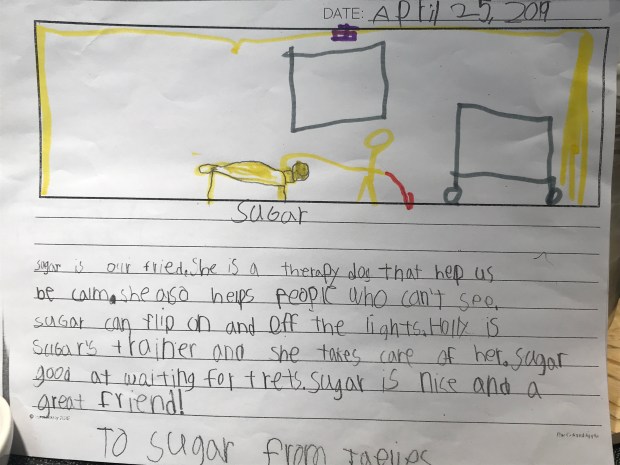 DATE: April 25, 2019
Sugar
Sugar is our fried. She is a therapy dog that hep us
be calm. she also helps people who can't see.
sugar can flip on and off the lights. Holly is
Sugar's trainer and she takes care of her. Sugar
good at waiting for trets. Sugar is nice and a
great friend!
To sugar from